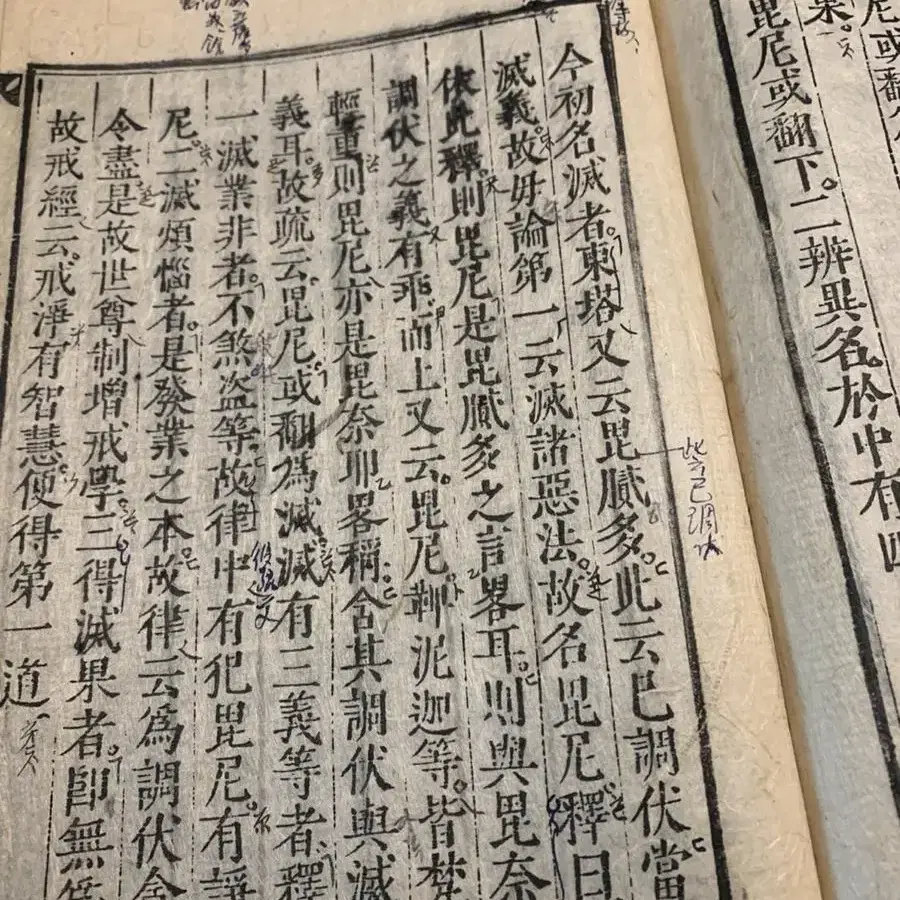 尼或翻
果。
毘尼或翻下。二辨異名。於中有四
今初名滅者。東塔又云毘膩多。此云已調伏。當
此云已調伏
滅義故毋論第一云滅諸惡法。故名毘尼。釋曰
依此釋。則毘尼是毘膩多之言畧耳。則與毘奈
調伏之義有乖。而上又云毘尼鞞泥迦等。皆梵
輕重。則毘尼亦是毘奈耶畧稱。含其調伏與滅
義耳。故疏云。毘尼或翻爲滅。滅有三義等者。釋
一滅業非者。不煞盜等。故律中有犯毘尼。有諍
尼。二滅煩惱者。是發業之本。故律云爲調伏
令盡。是故世尊制增戒學。三得滅果者。即無爲
故戒經云。戒淨有智慧。便得第一道